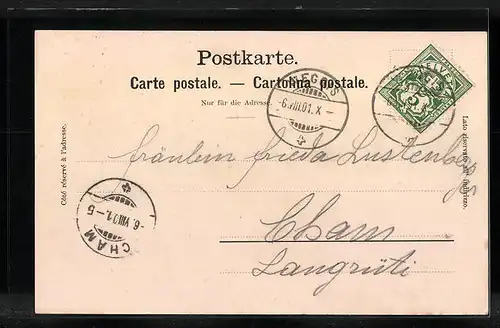 Postkarte.
Carte postale. — Cartolina postale.
Nur für die Adresse.
MEGGS
-6.VIII.01.X-
HELVE
5
Côté réservé à l'adresse.
Lato riservato all' indirizzo.
fräulein frieda Lustenberger
CHAM
-6.VIII.01.-5
Cham
Langrüti